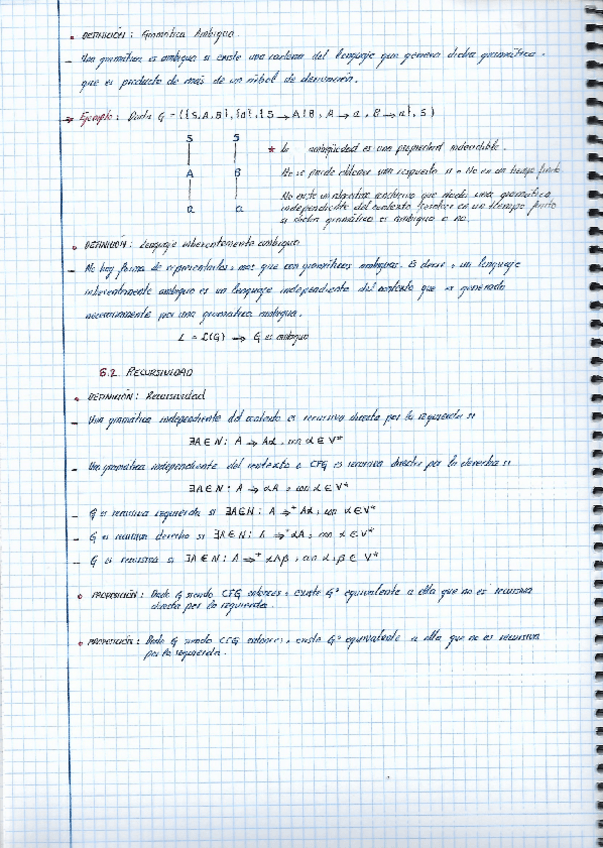 • DEFINICIÓN: Gramática Ambigua.
– Una gramática es ambigua si existe una cadena del lenguaje que genera dicha gramática.
que es producto de más de un árbol de derivación.
→ Ejemplo: Dada G = ({S,A,B},{a},{S→A|B, A→a, B→a},S)
S S
★ La ambigüedad es una propiedad indecidible.
A B
No se puede obtener una respuesta si o No en un tiempo finito
No existe un algoritmo que una gramática
a a
independiente del contexto en un tiempo finito
si dicha gramática es ambigua o no.
• DEFINICIÓN: Lenguaje inherentemente ambiguo
– No hay forma de representarlos, mas que con gramáticas ambiguas. Es decir, un lenguaje
inherentemente ambiguo es un lenguaje independiente del contexto que es generado
necesariamente por una gramática ambigua.
L = L(G) → G es ambigua
5.2. RECURSIVIDAD
• DEFINICIÓN: Recursividad
– Una gramática independiente del contexto es recursiva directa por la izquierda si
∃A∈N: A → Aα, con α∈V*
– Una gramática independiente del contexto o CFG es recursiva directa por la derecha si
∃A∈N: A → αA, con α∈V*
– G es recursiva izquierda si ∃A∈N: A ⇒⁺ Aα, con α∈V*
– G es recursiva derecha si ∃A∈N: A ⇒⁺ αA, con α∈V*
– G es recursiva si ∃A∈N: A ⇒⁺ αAβ, con α,β∈V*
• PROPOSICIÓN: Dada G siendo CFG entonces, existe G' equivalente a ella que no es recursiva
directa por la izquierda.
• PROPOSICIÓN: Dada G siendo CFG entonces, existe G' equivalente a ella que no es recursiva
por la izquierda.